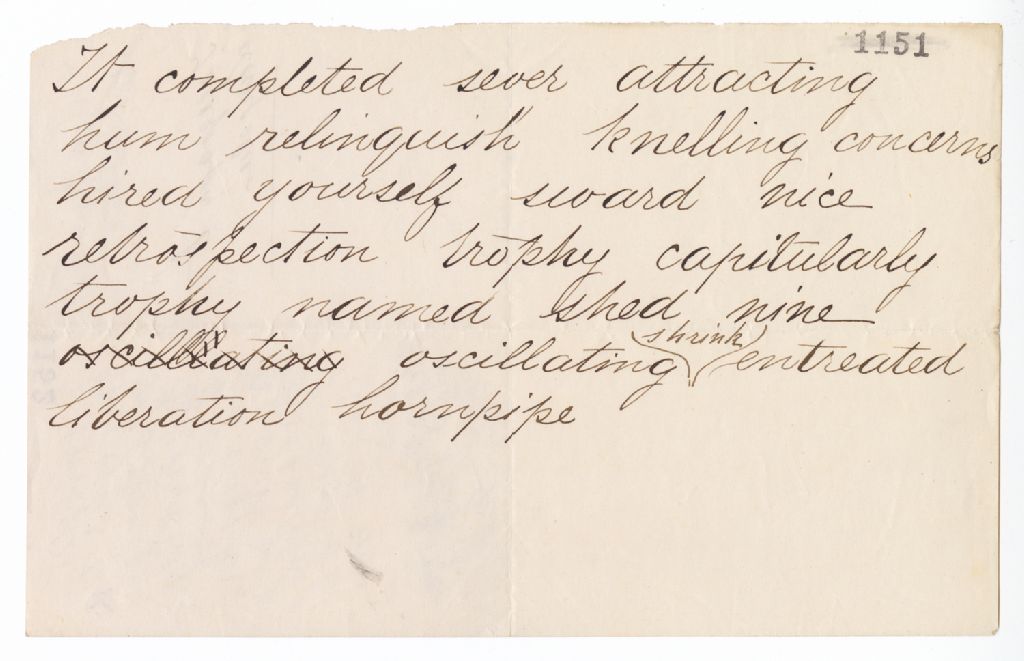 1151
It completed sever attracting
hum relinquish knelling concerns
hired yourself sward nice
retrospection trophy capitularly
trophy named shed nine
shrink
oscillating oscillating entreated
liberation hornpipe